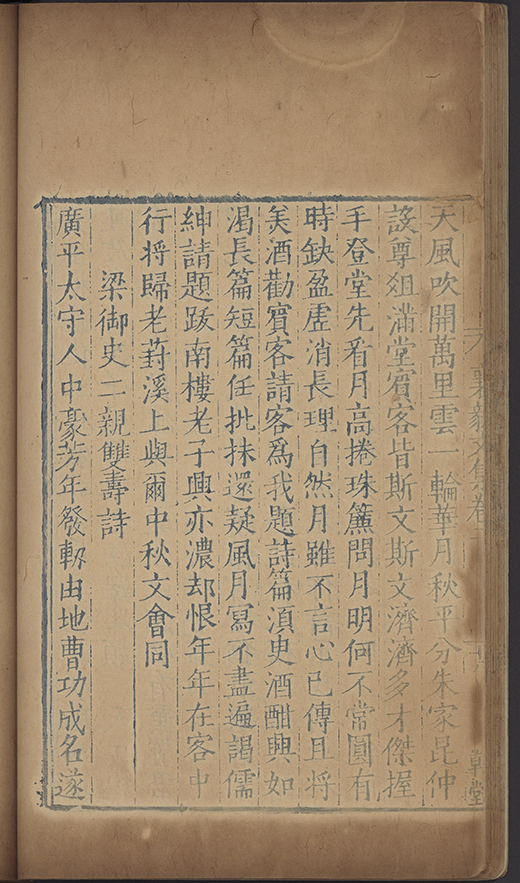 天風吹開萬里雲一輪華月秋平分朱家昆仲
設尊俎滿堂賓客皆斯文斯文濟濟多才傑握
手登堂先看月高捲珠簾問月明何不常圓有
時缺盈虛消長理自然月雖不言心已傳且將
美酒勸賓客請客為我題詩篇滇史酒酣興如
渴長篇短篇任批抹還疑風月寫不盡遍謁儒
紳請題跋南樓老子興亦濃却恨年年在客中
行将歸老葑溪上與爾中秋文會同
梁御史二親雙壽詩
廣平太守人中豪芳年發軔由地曹功成名遂
襄毅文集卷
草堂